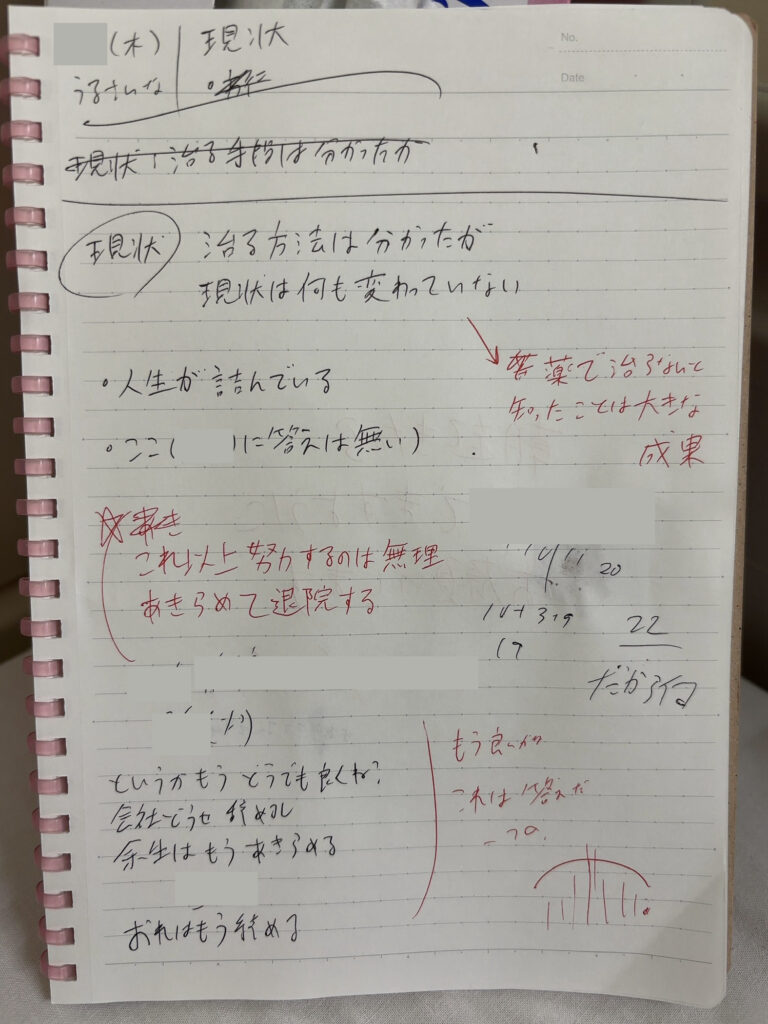 (木) 現状
うるさいな
No.
Date
現状！治る手段は分かったが
現状 治る方法は分かったが
現状は何も変わっていない
薬で治らないと
知ったことは大きな
成果
・人生が詰んでいる
・ここ( )に答えは無い)
これ以上努力するのは無理
あきらめて退院する
20
22
19
だから
もう良いかな
これは答えだ
というかもうどうでも良くね?
会社どうせ辞めるし
余生はもうあきらめる
おれはもう辞める